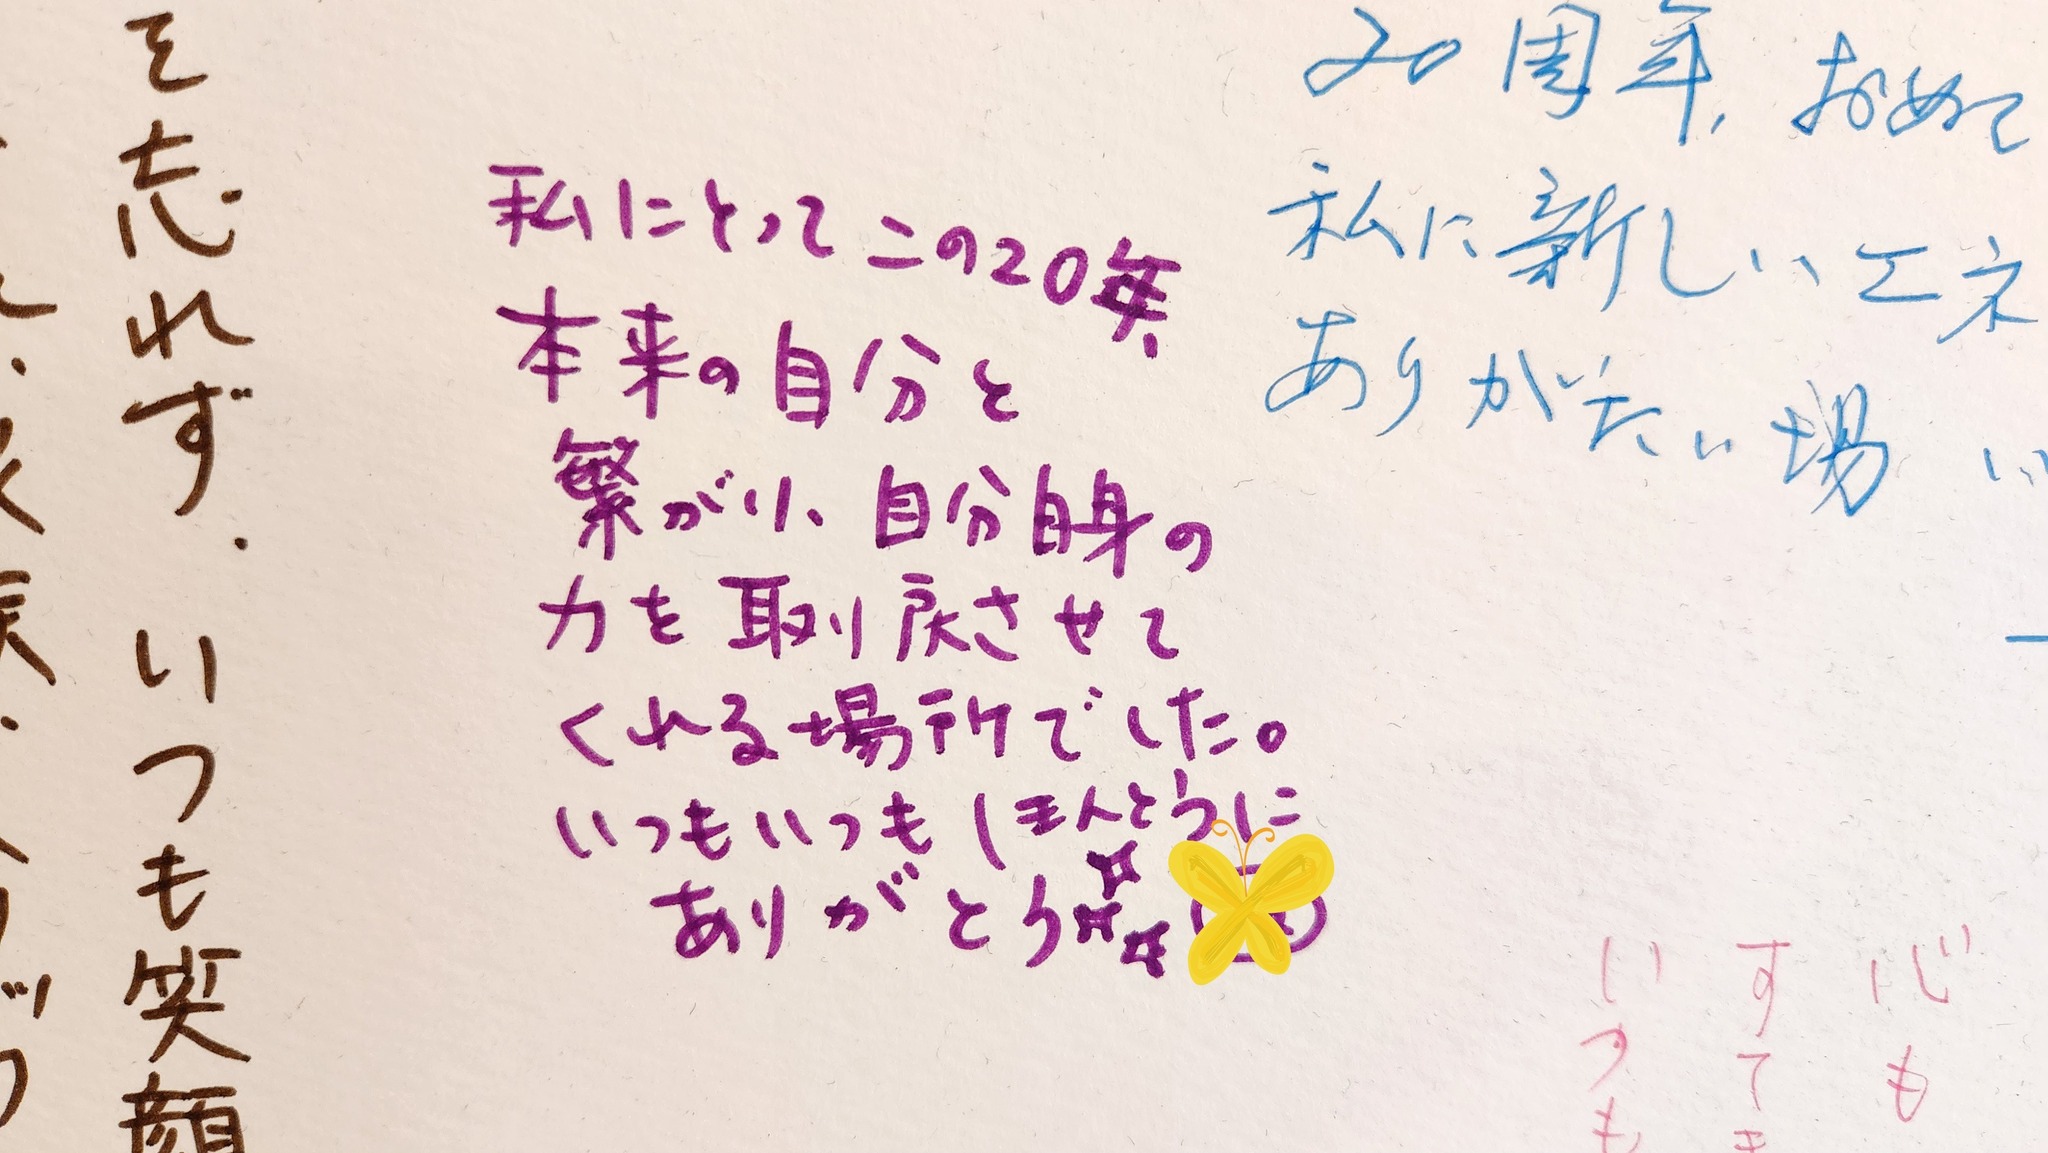 を忘れず.いつも笑顔
私にとってこの20年、
本来の自分と
繋がり、自分自身の
力を取り戻させて
くれる場所でした。
いつもいつもほんとうに
ありがとう
20周年,おめで
私に新しいエネ
ありがたい場
心も
すて
いつも